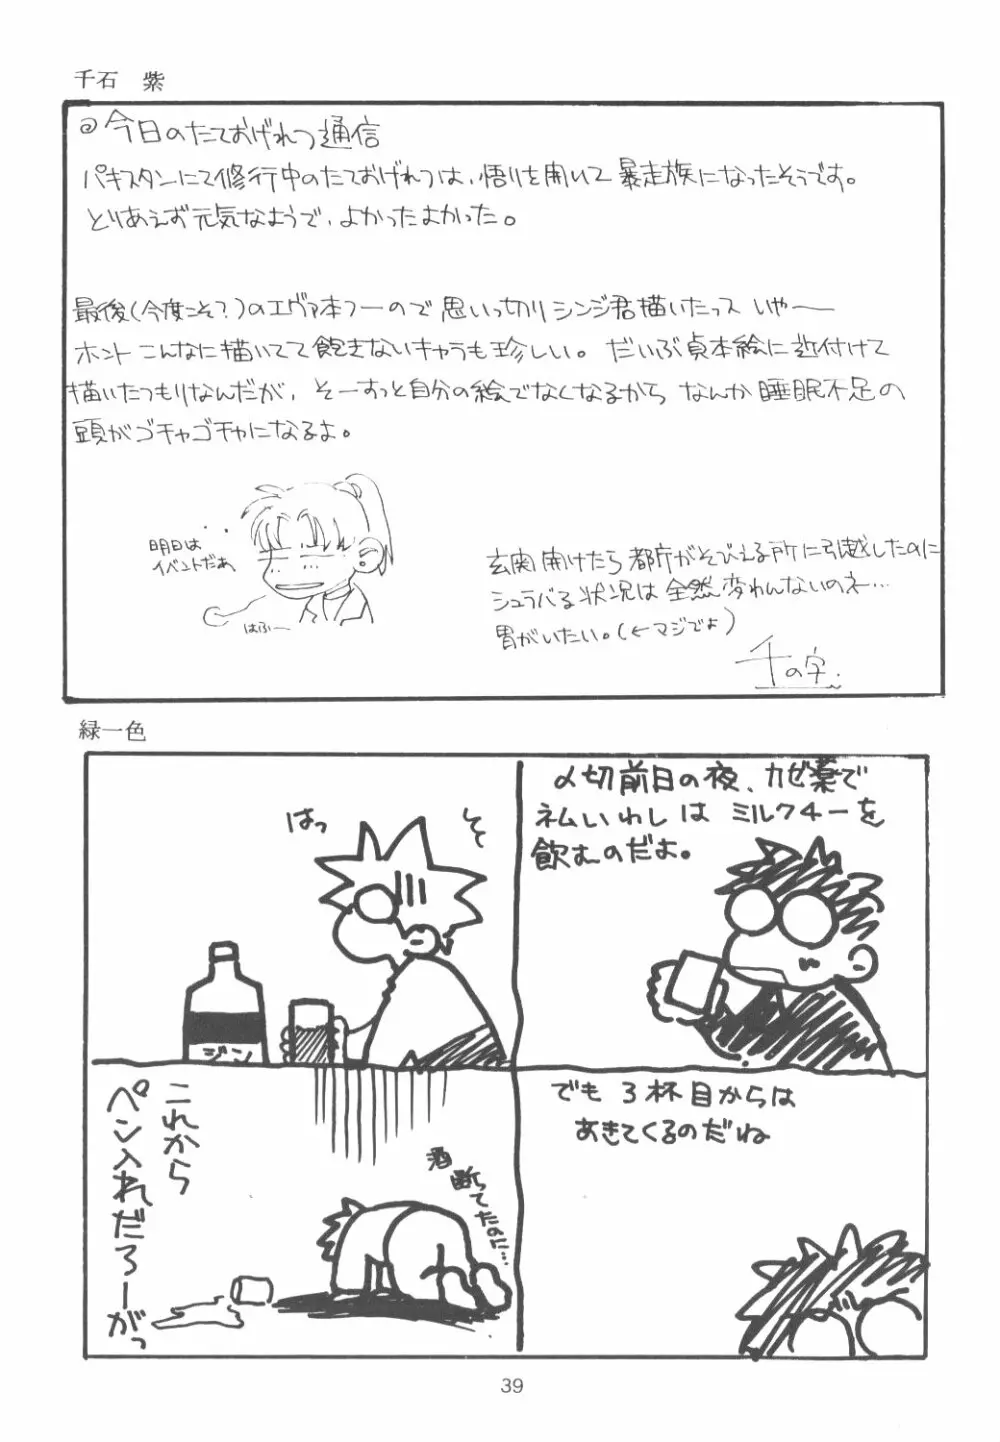 千石　紫
◎今日のたておげれつ通信
パキスタンにて修行中のたておげれつは、悟りを開いて暴走族になったそうです。
とりあえず元気なようで、よかったよかった。
最後(今度こそ？)のエヴァ本フーので思いっ切りシンジ君描いたっス いやー
ホント こんなに描いてて飽きないキャラも珍しい。だいぶ貞本絵に近付けて
描いたつもりなんだが、そーすっと自分の絵でなくなるから なんか睡眠不足の
頭がゴチャゴチャになるよ。
明日は
イベントだぁ
はふー
玄関開けたら都庁がそびえる所に引越したのに
シュラバる状況は全然変わんないのネ…
胃がいたい。(←マジでよ)
千の字
緑一色
〆切前日の夜、カゼ薬で
ネムいわしは ミルクチーを
飲むのだよ。
でも 3杯目からは
あきてくるのだね
はっ
そそ
ジン
これから
ペン入れだろーがっ
酒
断ってたのに…
39